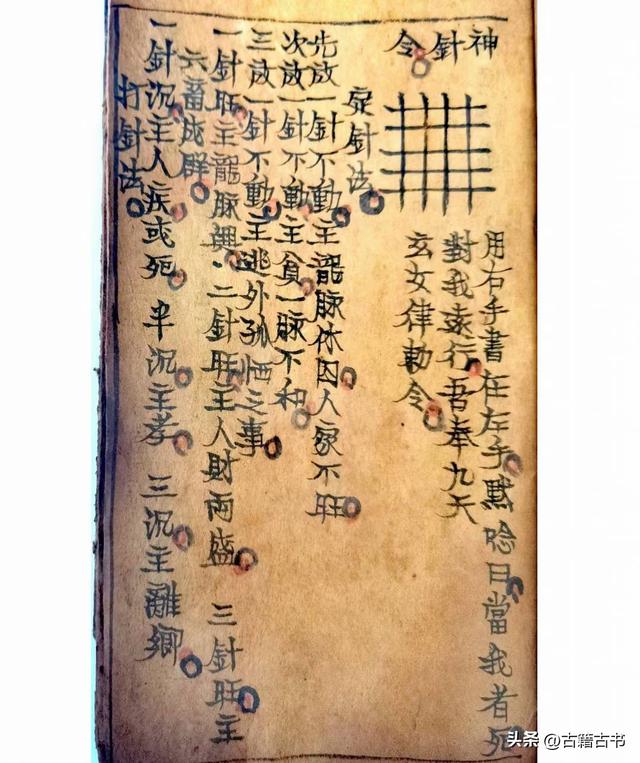 神針令
用右手書在左手默唸曰當我者死
對我遠行吾奉九天
玄女律勅令
定針法
先放一針不動主龍脉休囚人家不旺
次放一針不動主貪一脉不和
三放一針不動主逃外孤恓之事
一針旺主龍脉興．二針旺主人財兩盛 三針旺主
六畜成群
一針沉主人疾或死 半沉主孝 三沉主離鄉
打針法
头条 @古籍古书